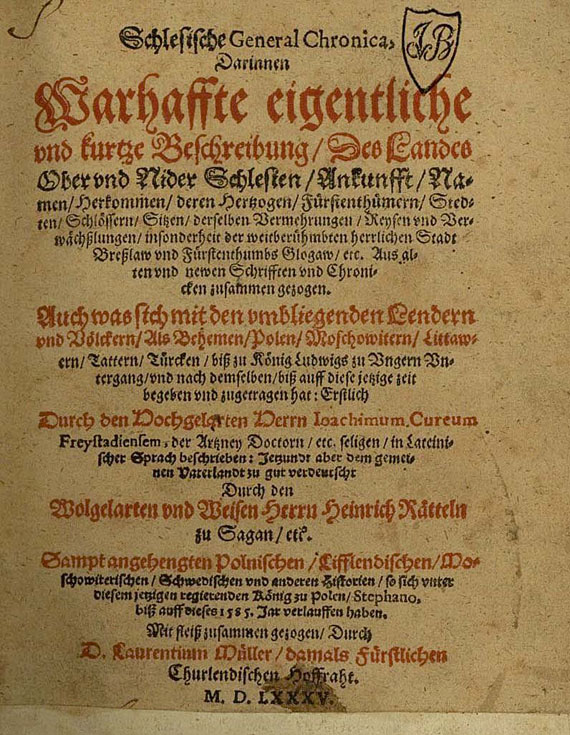 Schlesische General Chronica,
JB
Darinnen
Warhaffte eigentliche
vnd kurtze Beschreibung / Des Landes
Ober vnd Nider Schlesien / Ankunfft / Na-
men / Herkommen / deren Hertzogen / Fürstenthümern / Sted-
ten / Schlössern / Sitzen / derselben Vermehrungen / Reysen vnd Ver-
wächßlungen / insonderheit der weitberühmbten herrlichen Stadt
Breßlaw vnd Fürstenthumbs Glogaw / etc. Aus al-
ten vnd newen Schrifften vnd Chroni-
cken zusammen gezogen.
Auch was sich mit den vmbliegenden Lendern
vnd Völckern / Als Behemen / Polen / Moschowitern / Littaw-
ern / Tattern / Türcken / biß zu König Ludwigs zu Vngern Vn-
tergang / vnd nach demselben / biß auff diese jetzige zeit
begeben vnd zugetragen hat: Erstlich
Durch den Hochgelarten Herrn Ioachimum, Cureum
Freystadiensem, der Artzney Doctorn / etc. seligen / in Lateini-
scher Sprach beschrieben: Jetzundt aber dem gemei-
nen Vaterlandt zu gut verdeutscht
Durch den
Wolgelarten vnd Weisen Herrn Heinrich Rätteln
zu Sagan / etc.
Sampt angehengten Polnischen / Lifflendischen / Mo-
schowiterischen / Schwedischen vnd anderen Historien / so sich vnter
diesem jetzigen regierenden König zu Polen / Stephano,
biß auff dieses 1585. Jar verlauffen haben.
Mit fleiß zusammen gezogen / Durch
D. Laurentium Müller / damals Fürstlichen
Churlendischen Hoffraht.
M. D. LXXXV.